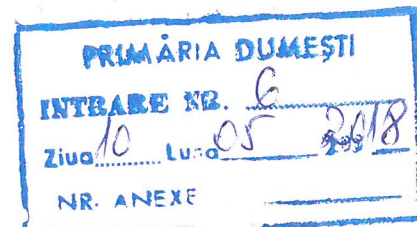 PRIMĂRIA DUMEȘTI
INTRARE NR. 6
Ziua 10 Luna 05 2018
NR. ANEXE